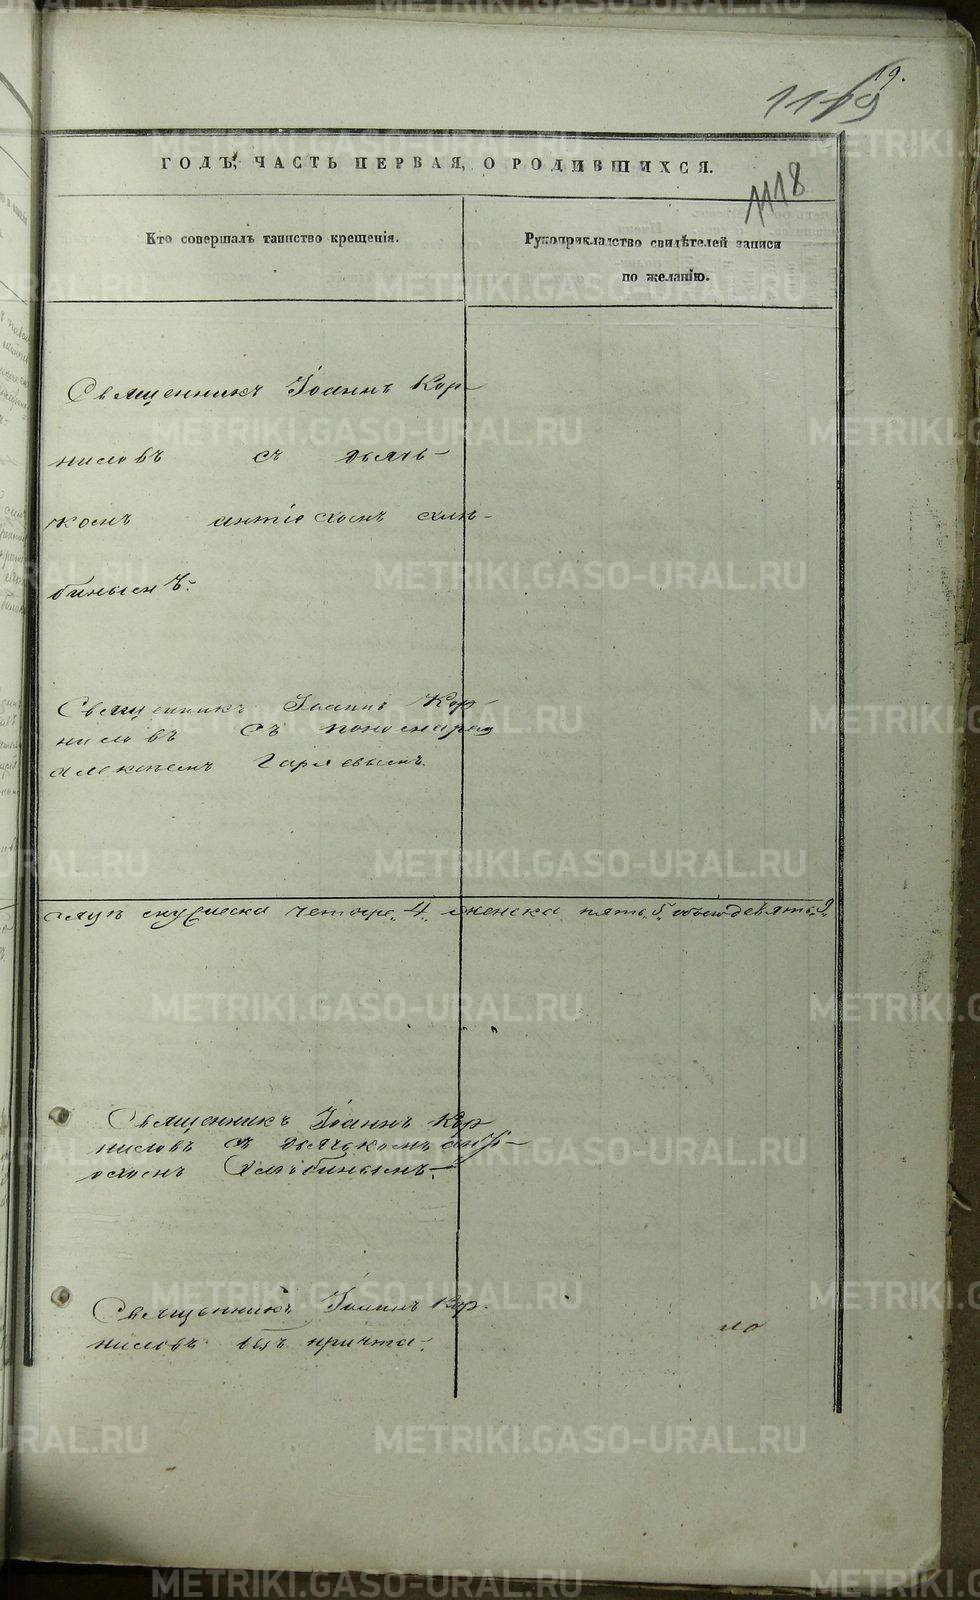 19.
1119
ГОДЪ, ЧАСТЬ ПЕРВАЯ, О РОДИВШИХСЯ.
1118
Кто совершалъ таинство крещенія.
Рукоприкладство свидѣтелей записи
по желанію.
Священникъ Іоаннъ Кор-
ниловъ съ дьячь-
комъ антіохомъ хлѣ-
бинымъ.
Священникъ Іоаннъ Кор-
ниловъ съ пономаремъ
алексѣемъ Гаряевымъ.
мужеска четыре 4. женска пять 5. обоего девять 9.
Священникъ Іоаннъ Кор
ниловъ съ дьячькомъ анті-
охомъ Хлѣбинымъ.
Священникъ Іоаннъ Кор-
ниловъ безъ причта.
METRIKI.GASO-URAL.RU